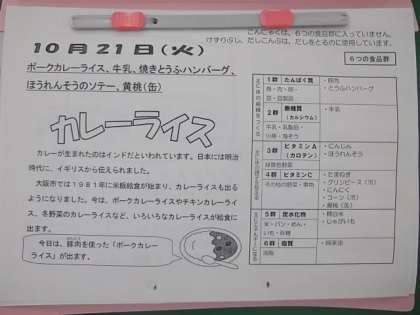 10月21日(火)
ポークカレーライス、牛乳、焼きとうふハンバーグ、
ほうれんそうのソテー、黄桃(缶)
カレーライス
カレーが生まれたのはインドだといわれています。日本には明治
時代に、イギリスから伝えられました。
大阪市では1981年に米飯給食が始まり、カレーライスも出る
ようになりました。今は、ポークカレーライスやチキンカレーライ
ス、冬野菜のカレーライスなど、いろいろなカレーライスが給食に
出ます。
今日は、豚肉を使った「ポークカレー
ライス」が出ます。
こんにゃくは、6つの食品群に入っていません。
けずりぶし、だしこんぶは、だしをとるのに使用しています。
6つの食品群
1群 たんぱく質
魚・肉・卵・
豆・豆製品
・豚肉
・とうふハンバーグ
2群 無機質
(カルシウム)
牛乳・乳製品・
小魚・海そう
・牛乳
3群 ビタミンA
(カロテン)
緑黄色野菜
・にんじん
・ほうれんそう
4群 ビタミンC
その他の野菜・果物
・たまねぎ
・グリンピース(冷)
・にんにく
・コーン(冷)
・黄桃(缶)
5群 炭水化物
米・パン・めん・
いも・砂糖
・精白米
・じゃがいも
6群 脂質
油脂
・綿実油